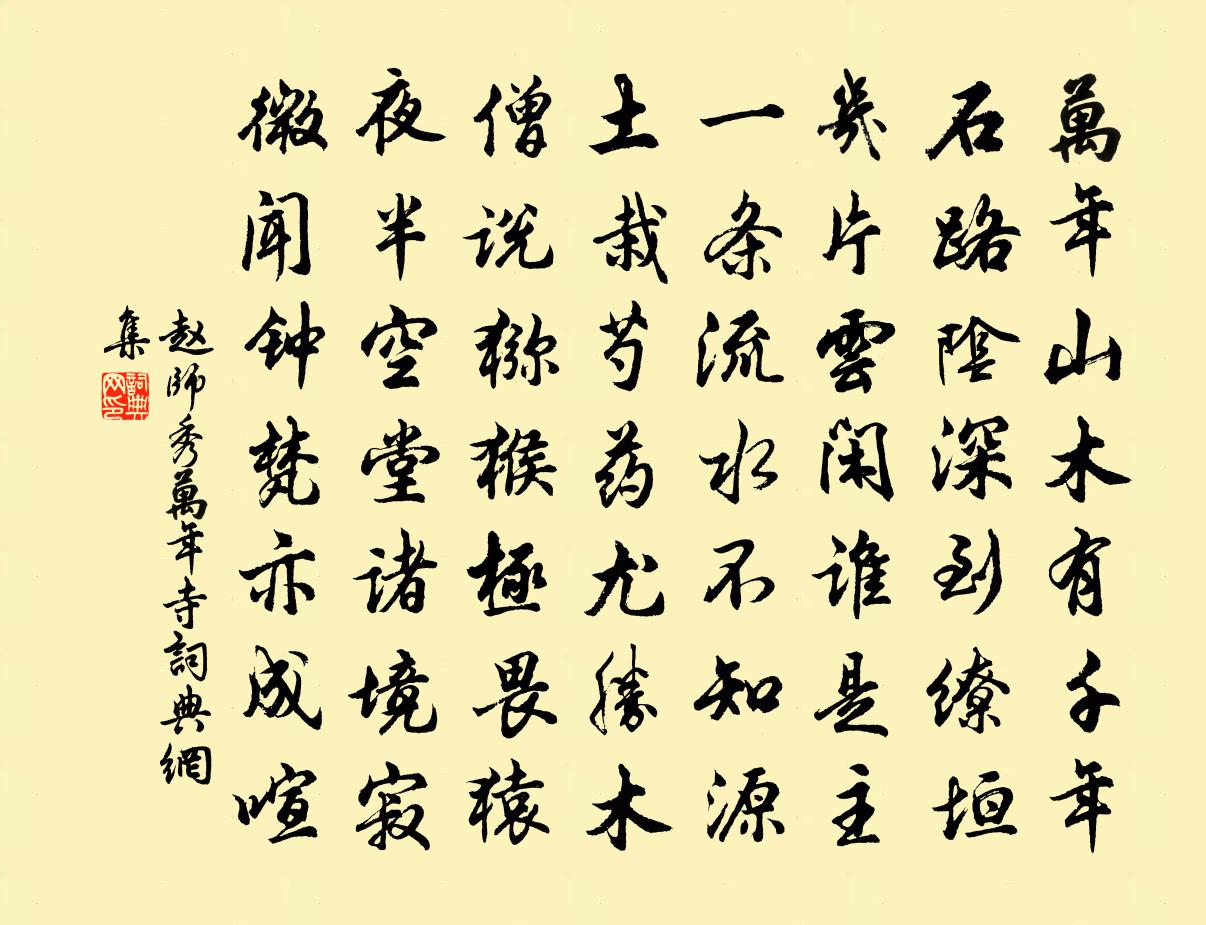 萬年山木有千年
石路陰深到繚垣
幾片雲闲誰是主
一条流水不知源
土栽芍药尤勝木
僧说猕猴極畏猿
夜半空堂诸境寂
微闻钟梵亦成喧
赵師秀萬年寺詞典網
集
詞典网印